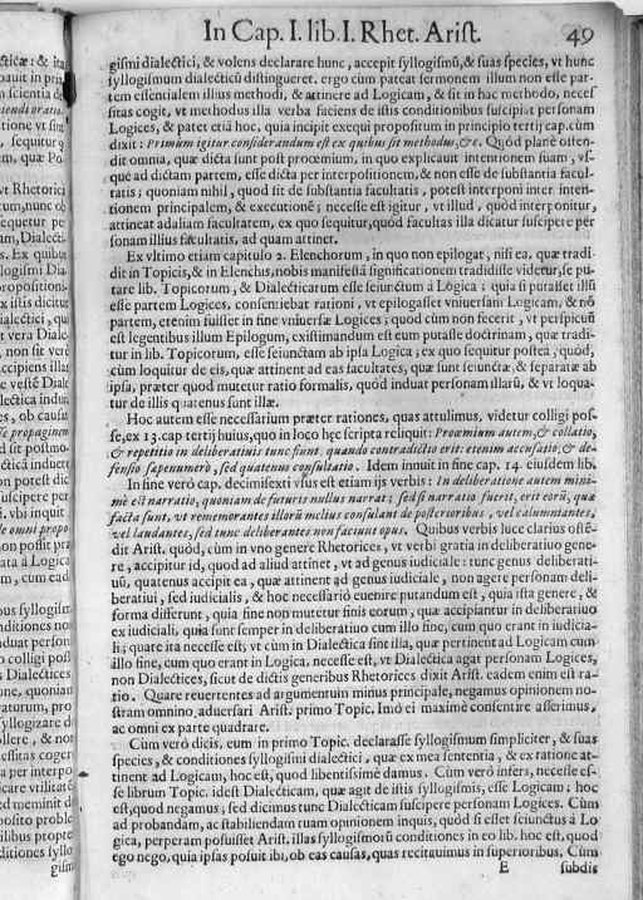 In Cap. I. lib. I. Rhet. Arist. 49
gismi dialectici, & volens declarare hunc, accepit syllogismũ, & suas species, vt hunc
syllogismum dialecticũ distingueret. ergo cùm pateat sermonem illum non esse par-
tem essentialem illius methodi, & attinere ad Logicam, & sit in hac methodo, neces
sitas cogit, vt methodus illa verba faciens de istis conditionibus suscipiat personam
Logices, & patet etiã hoc, quia incipit exequi propositum in principio tertij cap. cùm
dixit: Primùm igitur considerandum est ex quibus sit methodus, &c. Quòd planè osten-
dit omnia, quæ dicta sunt post proœmium, in quo explicauit intentionem suam, vs-
que ad dictam partem, esse dicta per interpositionem, & non esse de substantia facul-
tatis; quoniam nihil, quod sit de substantia facultatis, potest interponi inter inten-
tionem principalem, & executionẽ; necesse est igitur, vt illud, quòd interponitur,
attineat ad aliam facultatem, ex quo sequitur, quòd facultas illa dicatur suscipere per
sonam illius facultatis, ad quam attinet.
Ex vltimo etiam capitulo 2. Elenchorum, in quo non epilogat, nisi ea, quæ tradi-
dit in Topicis, & in Elenchis, nobis manifestã significationem tradidisse videtur, se pu-
tare lib. Topicorum, & Dialecticarum esse seiunctum à Logica; quia si putasset illũ
esse partem Logices, consentiebat rationi, vt epilogasset vniuersam Logicam, & nõ
partem, etenim fuisset in fine vniuersæ Logices; quod cùm non fecerit, vt perspicuũ
est legentibus illum Epilogum, existimandum est eum putasse doctrinam, quæ tradi-
tur in lib. Topicorum, esse seiunctam ab ipsa Logica; ex quo sequitur postea, quòd,
cùm loquitur de eis, quæ attinent ad eas facultates, quæ sunt seiunctæ, & separatæ ab
ipsa, præter quod mutetur ratio formalis, quòd induat personam illarũ, & vt loqua-
tur de illis quatenus sunt illæ.
Hoc autem esse necessarium præter rationes, quas attulimus, videtur colligi pos-
se, ex 13. cap tertij huius, quo in loco hęc scripta reliquit: Proœmium autem, & collatio,
& repetitio in deliberatiuis tunc fiunt, quando contradictio erit: etenim accusatio, & de-
fensio sæpenumerò, sed quatenus consultatio. Idem innuit in fine cap. 14. eiusdem lib.
In fine verò cap. decimisexti vsus est etiam ijs verbis: In deliberatione autem mini-
mè est narratio, quoniam de futuris nullus narrat; sed si narratio fuerit, erit eorũ, quæ
facta sunt, vt rememorantes illorũ melius consulant de posterioribus, vel calumniantes,
vel laudantes, sed tunc deliberantes non faciunt opus. Quibus verbis luce clarius ostẽ-
dit Arist. quòd, cùm in vno genere Rhetorices, vt verbi gratia in deliberatiuo gene-
re, accipitur id, quod ad aliud attinet, vt ad genus iudiciale: tunc genus deliberati-
uũ, quatenus accipit ea, quæ attinent ad genus iudiciale, non agere personam deli-
beratiui, sed iudicialis, & hoc necessariò euenire putandum est, quia ista genere, &
forma differunt, quia fine non mutetur finis eorum, quæ accipiantur in deliberatiuo
ex iudiciali, quia sunt semper in deliberatiuo cum illo fine, cum quo erant in iudicia-
li; quare ita necesse est, vt cùm in Dialectica sint illa, quæ pertinent ad Logicam cum
illo fine, cum quo erant in Logica, necesse est, vt Dialectica agat personam Logices,
non Dialectices, sicut de dictis generibus Rhetorices dixit Arist. eadem enim est ra-
tio. Quare reuertentes ad argumentum minus principale, negamus opinionem no-
stram omnino aduersari Arist. primo Topic. Imò ei maximè consentire asserimus,
ac omni ex parte quadrare.
Cùm verò dicis, eum in primo Topic. declarasse syllogismum simpliciter, & suas
species, & conditiones syllogismi dialectici, quæ ex mea sententia, & ex ratione at-
tinent ad Logicam, hoc est, quod libentissimè damus. Cùm verò infers, necesse es-
se librum Topic. idest Dialecticam, quæ agit de istis syllogismis, esse Logicam; hoc
est, quod negamus; sed dicimus tunc Dialecticam suscipere personam Logices. Cùm
ad probandam, ac stabiliendam tuam opinionem inquis, quòd si esset seiunctus à Lo
gica, perperam posuisset Arist. illas syllogismorũ conditiones in eo lib. hoc est, quod
ego nego, quia ipsas posuit ibi, ob eas causas, quas recitauimus in superioribus. Cùm
E subdis